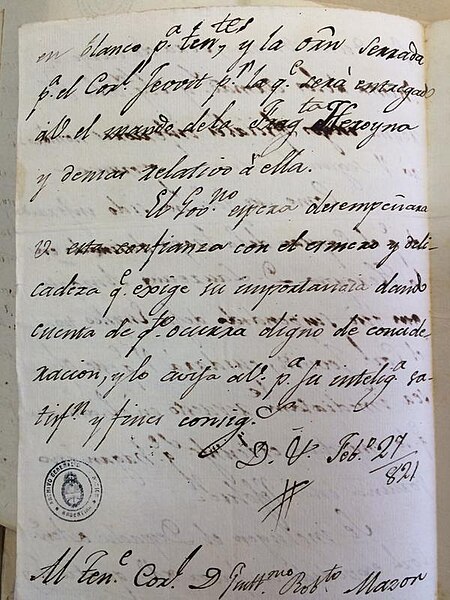 en blanco p.ª ten.tes, y la orn serrada
p.ª el Cor.l Jevvit p.r la q.e será entregado
al V. el mando de la Frag.ta Heroyna
y demas relativo á ella.
El Gov.no espera desempeñara
V. esta confianza con el esmero y deli-
cadeza q.e exige su importancia dando
cuenta de q.to ocurra digno de concide-
racion, y lo aviso a V. p.ª su intelig.ª sa-
tisf.n y fines consig.tes
D. V. Feb.o 27/821
Al Ten.e Cor.l D Guill.mo Rob.to Mazon
ARCHIVO GENERAL
ARGENTINA